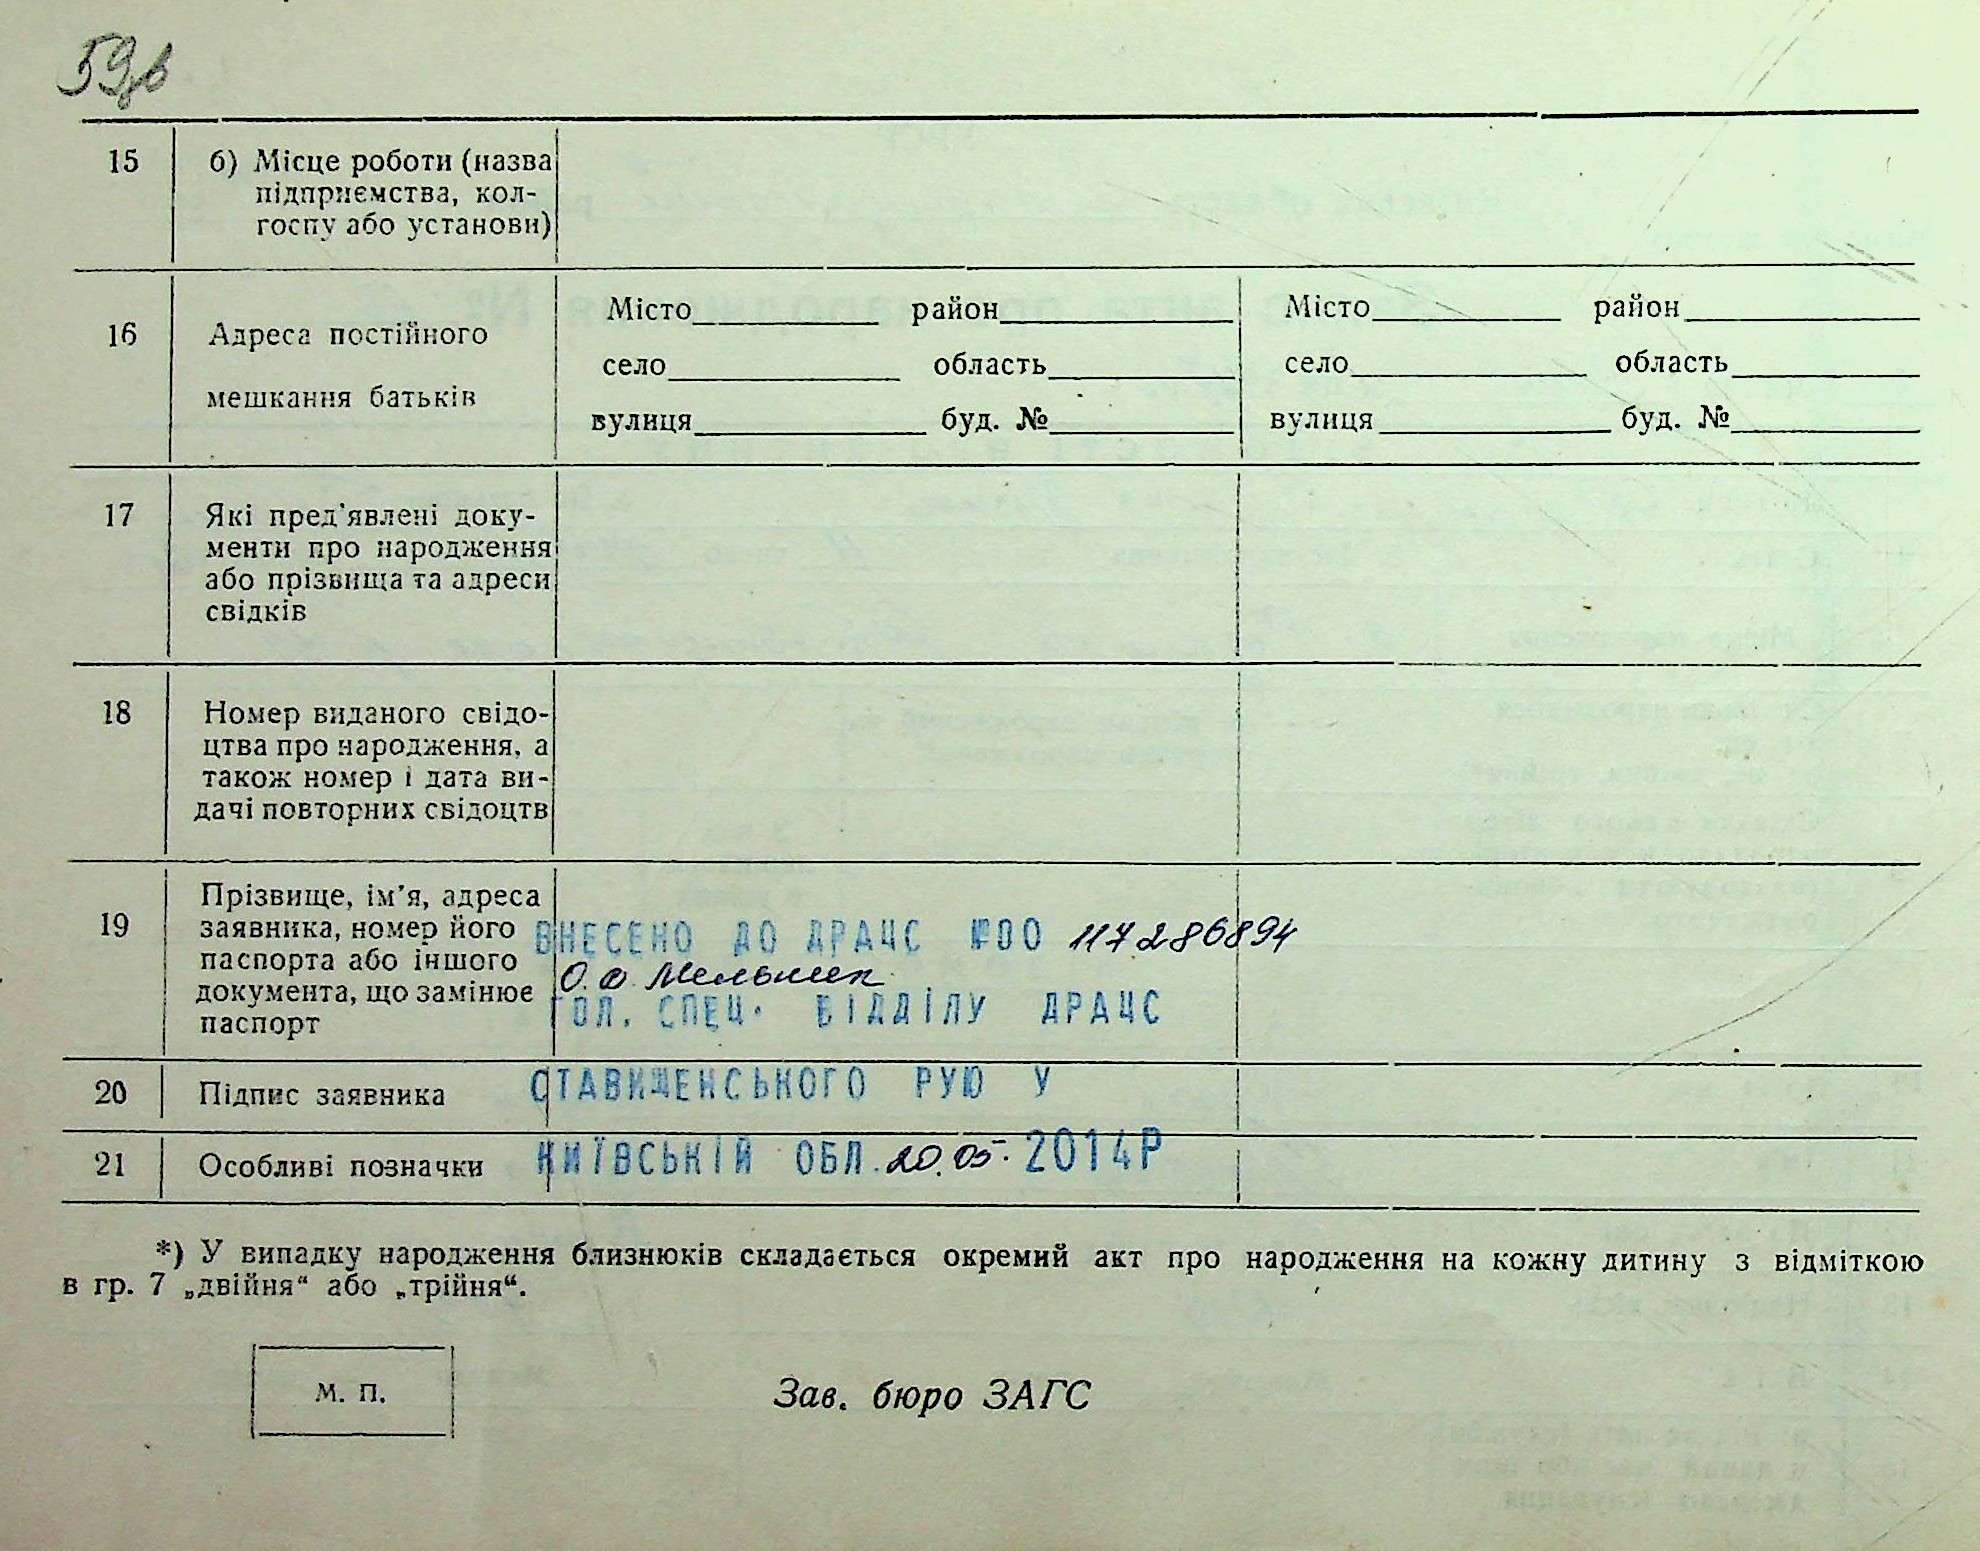 59зв
15 б) Місце роботи (назва
підприємства, кол-
госпу або установи)
16 Адреса постійного
мешкання батьків
Місто район
село область
вулиця буд. №
Місто район
село область
вулиця буд. №
17 Які пред'явлені доку-
менти про народження
або прізвища та адреси
свідків
18 Номер виданого свідо-
цтва про народження, а
також номер і дата ви-
дачі повторних свідоцтв
19 Прізвище, ім'я, адреса
заявника, номер його
паспорта або іншого
документа, що замінює
паспорт
ВНЕСЕНО ДО ДРАЦС №00 117286894
О.О. Мельник
ГОЛ. СПЕЦ. ВІДДІЛУ ДРАЦС
20 Підпис заявника
СТАВИЩЕНСЬКОГО РУЮ У
21 Особливі позначки
КИЇВСЬКІЙ ОБЛ. 20.05. 2014Р
*) У випадку народження близнюків складається окремий акт про народження на кожну дитину з відміткою
в гр. 7 „двійня“ або „трійня“.
М. П.
Зав. бюро ЗАГС